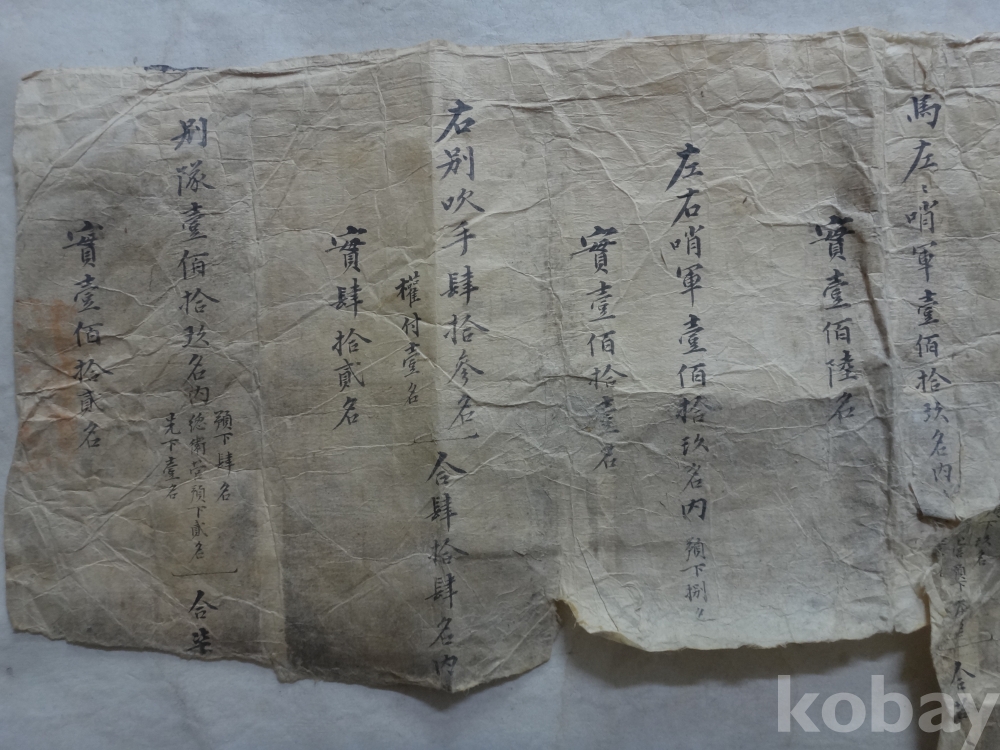 馬左〻哨軍壹佰拾玖名內
下玖名
預下
合
實壹佰陸名
左右哨軍壹佰拾玖名內 預下捌名
實壹佰拾壹名
右別吹手肆拾參名 合肆拾肆名內
權付壹名
實肆拾貳名
別隊壹佰拾玖名內
預下肆名
總衛營預下貳名
老下壹名
合柒
實壹佰拾貳名
kobay